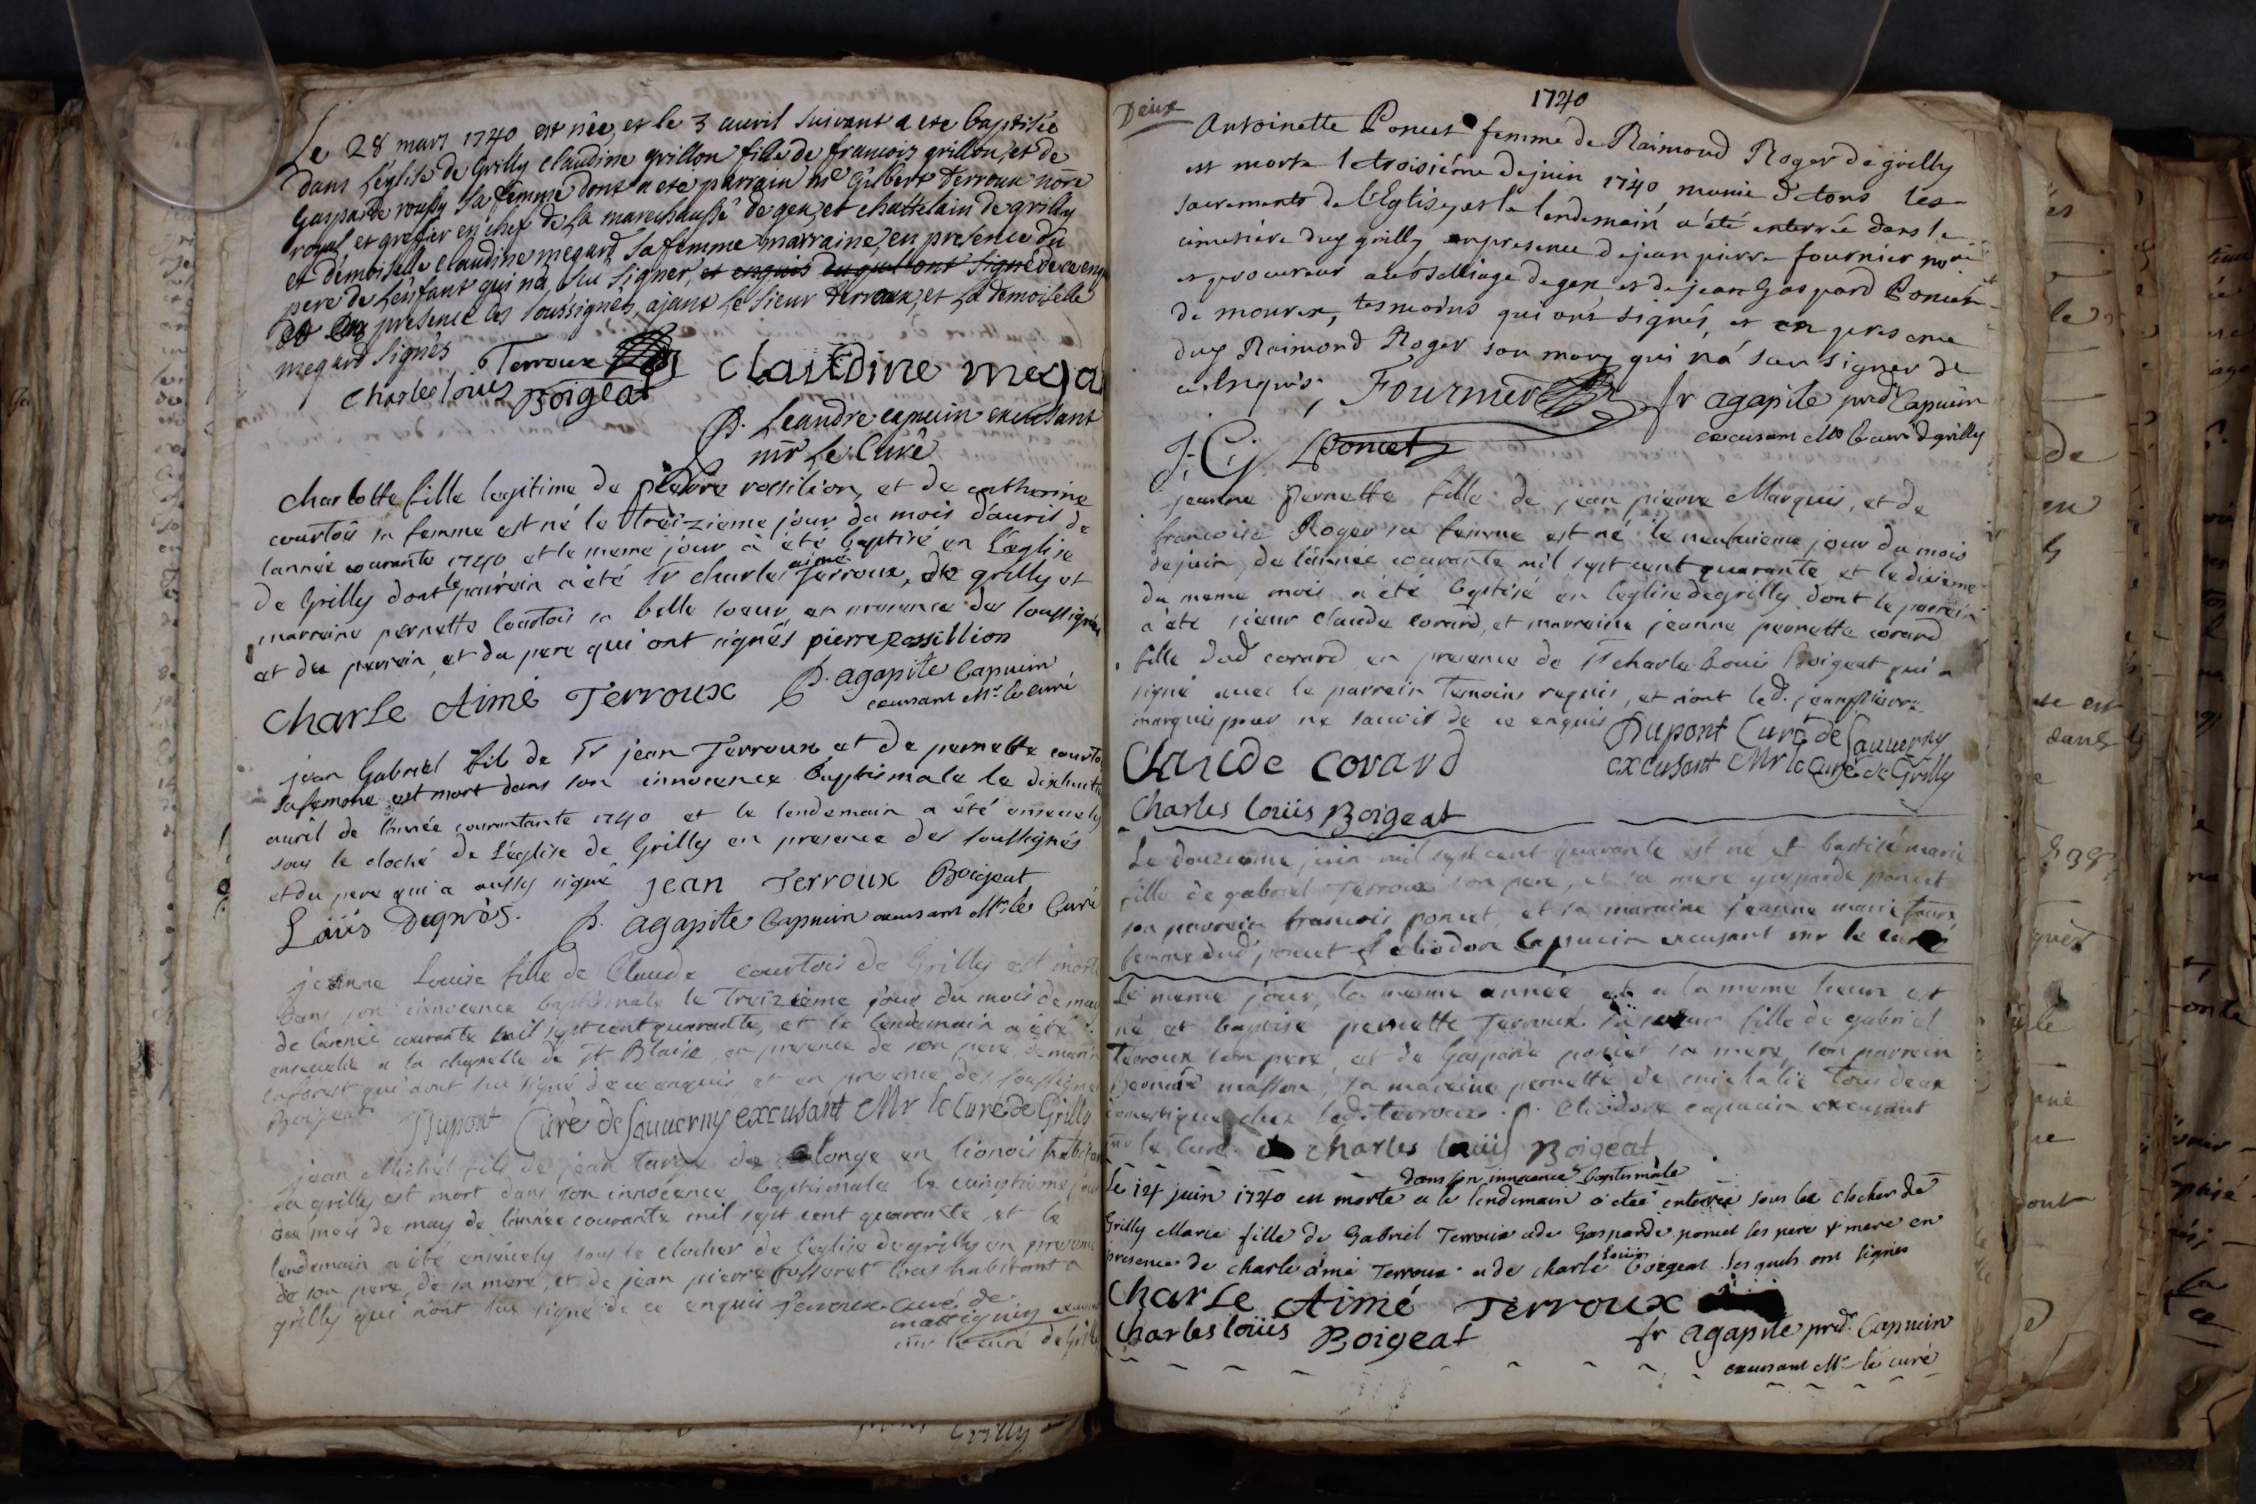 Le 28 mars 1740 est née, et le 3 avril suivant a ete baptisée
dans l'église de Grilly claudine grillon fille de francois grillon, et de
Gasparde roussy sa femme dont a eté parrain me Gilbert terroux nore
royal et grefier en chef de la marechaussé de gex, et chattelain de grilly
et demoiselle claudine megard sa femme marraine, en presence du
pere de l'enfant qui n'a, sû signer, et enquis duquel ont signé de ce enquis
presence des soussignés, ajant le sieur terroux, et la demoiselle
megard signés Terroux Claudine mega
Charles loüis Boigeat
p. Leandre capucin excusant
mr Le Curé
charlotte fille legitime de pierre rossilion, et de catherine
courtois sa femme est né le treizieme jour du mois d'auril de
l'année courante 1740 et le meme jour à été baptisé en l'église
de Grilly dont le pairain a été sr charles aimé Terroux, de grilly et
marreine pernette Courtois sa belle soeur, en presence des soussignés
et du parrein, et du pere qui ont signés pierre Rossillion
Charle Aimé Terroux p. agapite Capucin
excusant Mr. le curé
jean Gabriel fils de sr jean Terroux et de pernette courtois
sa femme est mort dans son innocence baptismale le dixhuit
auril de l'année courantante 1740 et le lendemain a été ensevely
sous le cloché de l'église de Grilly en presence des soussignés
et du pere qui a aussy signé jean Terroux Boigeat
Loüis Degrós. p. agapite Capucin excusant Mr. le Curé
jeanne Louise fille de Claude courtois de Grilly est morte
dans son innocence baptismale le Treizieme jour du mois de mai
de l'année courante mil sept cent quarante, et le lendemain a été
ensevelie a la chapelle de St Blaise, en presence de son pere, de
qui n'ont su signé de ce enquis, et en presence des soussignés
Boigeat Dupont Curé de Sauverny excusant Mr le Curé de Grilly
jean Michel fils de jean de Colonge en lionois habitant
a grilly est mort dans son innocence baptismale le cinquieme jour
du mois de may de l'année courante mil sept cent quarante, et le
lendemain a été ensevely sous le clocher de l'église de grilly en presence
de son pere, de sa mere, et de jean pierre tous habitant a
grilly qui n'ont su signé de ce enquis Terroux Curé de
excusant
mr le curé de Grilly
Deux
1740
Antoinette Poncet femme de Raimond Roger de grilly
est morte le troisiéme de juin 1740 munie de tous les
sacrements de l'Eglise, et le lendemain a été enterrée dans le
cimetiére duy grilly en presence de jean pierre fournier noré
et procureur au bailliage de gex et de jean Gaspard Poncet
de mourex, tesmoins qui ont signés, et en presence
duy Raimond Roger son mary qui n'a sceu signer de
ce Inquis; Fournier fr agapite pred. Capucin
excusant Mr le curé d grilly
J. G. Poncet
jeanne pernette fille de jean pierre Marquis, et de
francoise Roger sa femme est né le neufuieme jour du mois
de juin, de l'année courante mil sept cent quarante et le dixieme
du meme mois a été baptisé en l'église de grilly dont le parrein
a été sieur claude corard, et marreine jeanne pernette corard
fille dud corard en presence de sr charle Louis Boigeat qui a
signé avec le parrein temoins requis, et n'ont led. jean pierre
marquis pour ne savoir de ce enquis Dupont Curé de Sauverny
excusant Mr le Curé de Grilly
Claude corard
Charles loüis Boigeat
Le douzieme juin mil sept cent quarante est né et baptisé marie
fille de gabriel Terroux son pere, et sa mere gasparde poncet
son parrein francois poncet, et sa maraine jeanne marie
femme dud. poncet f eliodore Capucin excusant mr le curé
Le meme jour, la meme année, et a la meme heure est
né et baptisé pernette Terroux sa soeur fille de gabriel
Terroux son pere, et de Gasparde poncet sa mere, son parrein
masson, sa maraine pernette de michalie tous deux
domestiques chez ledit terroux. p. eliodore capucin excusant
mr le Curé. Charles loüis Boigeat
dans son innocence baptismale
Le 14 juin 1740 est morte a le lendemain a eteé enterrée sous les clocher de
Grilly Marie fille de Gabriel Terroux ade Gasparde poncet les pere & mere en
presence de charle aimé Terroux a de charle loüis Boigeat lesquels ont signés
Charle Aimé Terroux
Charles loüis Boigeat fr agapite pred. Capucin
excusant Mr le curé